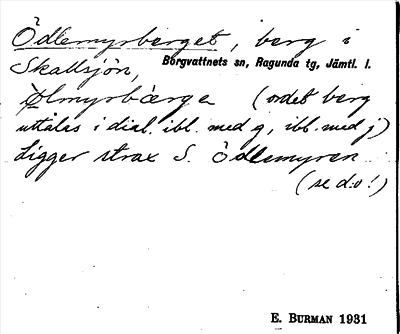 Ödlemyrberget, berg i
Skallsjön, Borgvattnets sn, Ragunda tg, Jämtl. l.
Ølmyrbærge (ordet berg
uttalas i dial. ibl. med g, ibl. med j)
Ligger strax S. Ödlemyren
(se d:o!)
E. BURMAN 1931